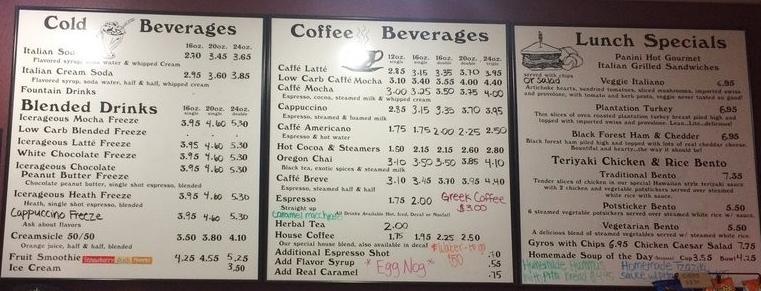 Cold Beverages
16oz. 20oz. 24oz.
Italian Soda 2.70 3.45 3.65
Flavored syrup, soda water & whipped cream
Italian Cream Soda 2.95 3.60 3.85
Flavored syrup, soda water, half & half, whipped cream
Fountain Drinks
Blended Drinks
16oz. 20oz. 24oz.
Icerageous Mocha Freeze 3.95 4.60 5.30
Low Carb Blended Freeze
Icerageous Latté Freeze 3.95 4.60 5.30
White Chocolate Freeze 3.95 4.60 5.30
Icerageous Chocolate 3.95 4.60 5.30
Peanut Butter Freeze
Chocolate peanut butter, single shot espresso, blended
Icerageous Heath Freeze 3.95 4.60 5.30
Heath, single shot espresso, blended
Cappuccino Freeze 3.95 4.60 5.30
Ask about flavors
Creamsicle 50/50 3.50 3.80 4.10
Orange juice, half & half, blended
Fruit Smoothie Strawberry 4.25 4.55 5.25
Ice Cream 3.50
Coffee Beverages
12oz. 16oz. 16oz. 20oz. 24oz.
single single double double triple
Caffé Latté 2.85 3.15 3.35 3.70 3.95
Low Carb Caffé Mocha 3.10 3.40 3.55 4.00 4.40
Caffé Mocha 3.00 3.25 3.50 3.75 4.00
Espresso, cocoa, steamed milk & whipped cream
Cappuccino 2.85 3.15 3.35 3.70 3.95
Espresso, steamed & foamed milk
Caffé Americano 1.75 1.75 2.00 2.25 2.50
Espresso & hot water
Hot Cocoa & Steamers 1.50 2.15 2.15 2.60 2.80
Oregon Chai 3.10 3.50 3.50 3.85 4.10
Black tea, exotic spices & steamed milk
Caffé Breve 3.10 3.45 3.70 3.95 4.40
Espresso, steamed half & half
Espresso 1.75 2.00 Greek Coffee
Straight up $3.00
Caramel macchiato All Drinks Available Hot, Iced, Decaf or Nonfat
Herbal Tea 2.00
House Coffee 1.75 1.95 2.25 2.50
Our special house blend, also available in decaf
Additional Espresso Shot .70
Add Flavor Syrup * Egg Nog * .55
Add Real Caramel .75
Lunch Specials
Panini Hot Gourmet
Italian Grilled Sandwiches
served with chips
or salad
Veggie Italiano 6.95
Artichoke hearts, sundried tomatoes, sliced mushrooms, imported swiss
and provolone, with tomato and herb pesto, veggie never tasted so good!
Plantation Turkey 6.95
Thin slices of oven roasted plantation turkey breast piled high and
topped with imported swiss and provolone. Lean...Lite...delicious!
Black Forest Ham & Cheddar 6.95
Black forest ham piled high and topped with lots of real cheddar cheese.
Bountiful and hearty...the way it should be!
Teriyaki Chicken & Rice Bento
Traditional Bento 7.35
Tender slices of chicken in our special Hawaiian style teriyaki sauce
with 2 chicken and vegetable potstickers served over steamed
white rice with sauce.
Potsticker Bento 5.50
6 steamed vegetable potstickers served over steamed white rice w/ sauce.
Vegetarian Bento 5.50
A delicious blend of steamed vegetables served w/ steamed white rice.
Gyros with Chips 6.95 Chicken Caesar Salad 7.75
Homemade Soup of the Day Cup 3.55 Bowl 4.25
Homemade Hummus Homemade Tzaziki
with Pita bread sauce